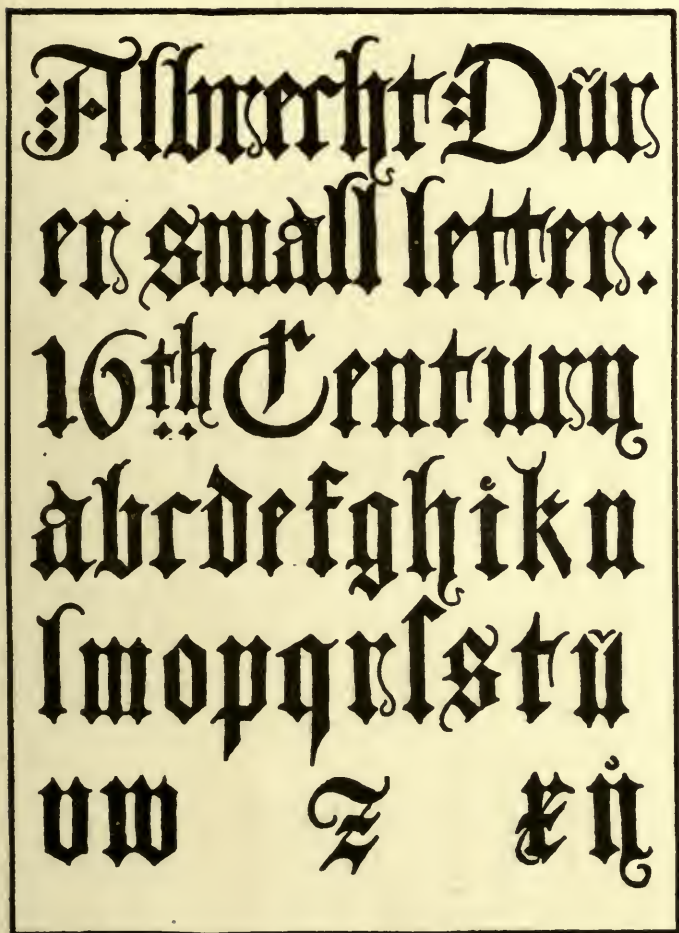 Albrecht: Dür
er small letter:
16th Century
abcdefghikn
lmopqrſstü
vw z xẙ